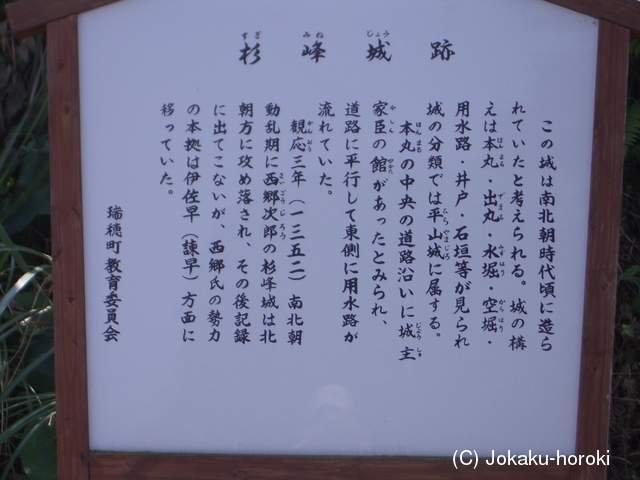 杉峰城跡
すぎ みね じょう
この城は南北朝時代頃に造ら
れていたと考えられる。城の構
えは本丸・出丸・水堀・空堀・
用水路・井戸・石垣等が見られ
城の分類では平山城に属する。
本丸の中央の道路沿いに城主
家臣の館があったとみられ、
道路に平行して東側に用水路が
流れていた。
観応三年(一三五二)南北朝
動乱期に西郷次郎の杉峰城は北
朝方に攻め落され、その後記録
に出てこないが、西郷氏の勢力
の本拠は伊佐早(諫早)方面に
移っていた。
瑞穂町教育委員会
(C) Jokaku-horoki